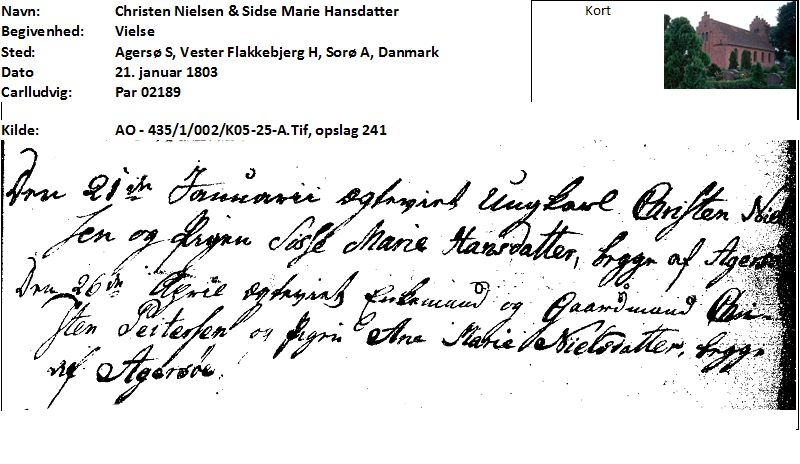 Navn: Christen Nielsen & Sidse Marie Hansdatter
Kort
Begivenhed: Vielse
Sted: Agersø S, Vester Flakkebjerg H, Sorø A, Danmark
Dato 21. januar 1803
Carlludvig: Par 02189
Kilde: AO - 435/1/002/K05-25-A.Tif, opslag 241
Den 21de Januarii ægteviet Ungkarl Christen Niel
sen og Pigen Sidse Marie Hansdatter, begge af Agersø
Den 26de April ægteviet Enkemand og Gaardmand Chri-
sten Peitersen og Pigen Ane Marie Nielsdatter, begge
af Agersøe.